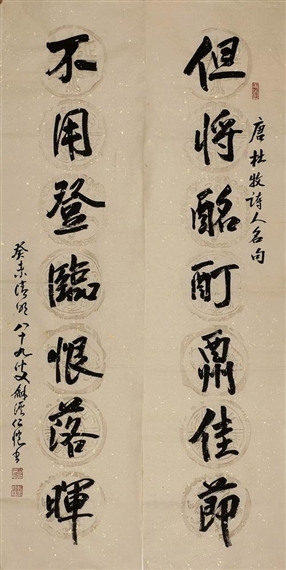 唐杜牧詩人名句
但将酩酊酬佳節
不用登臨恨落暉
癸未清明八十九叟龢溪仁愷書